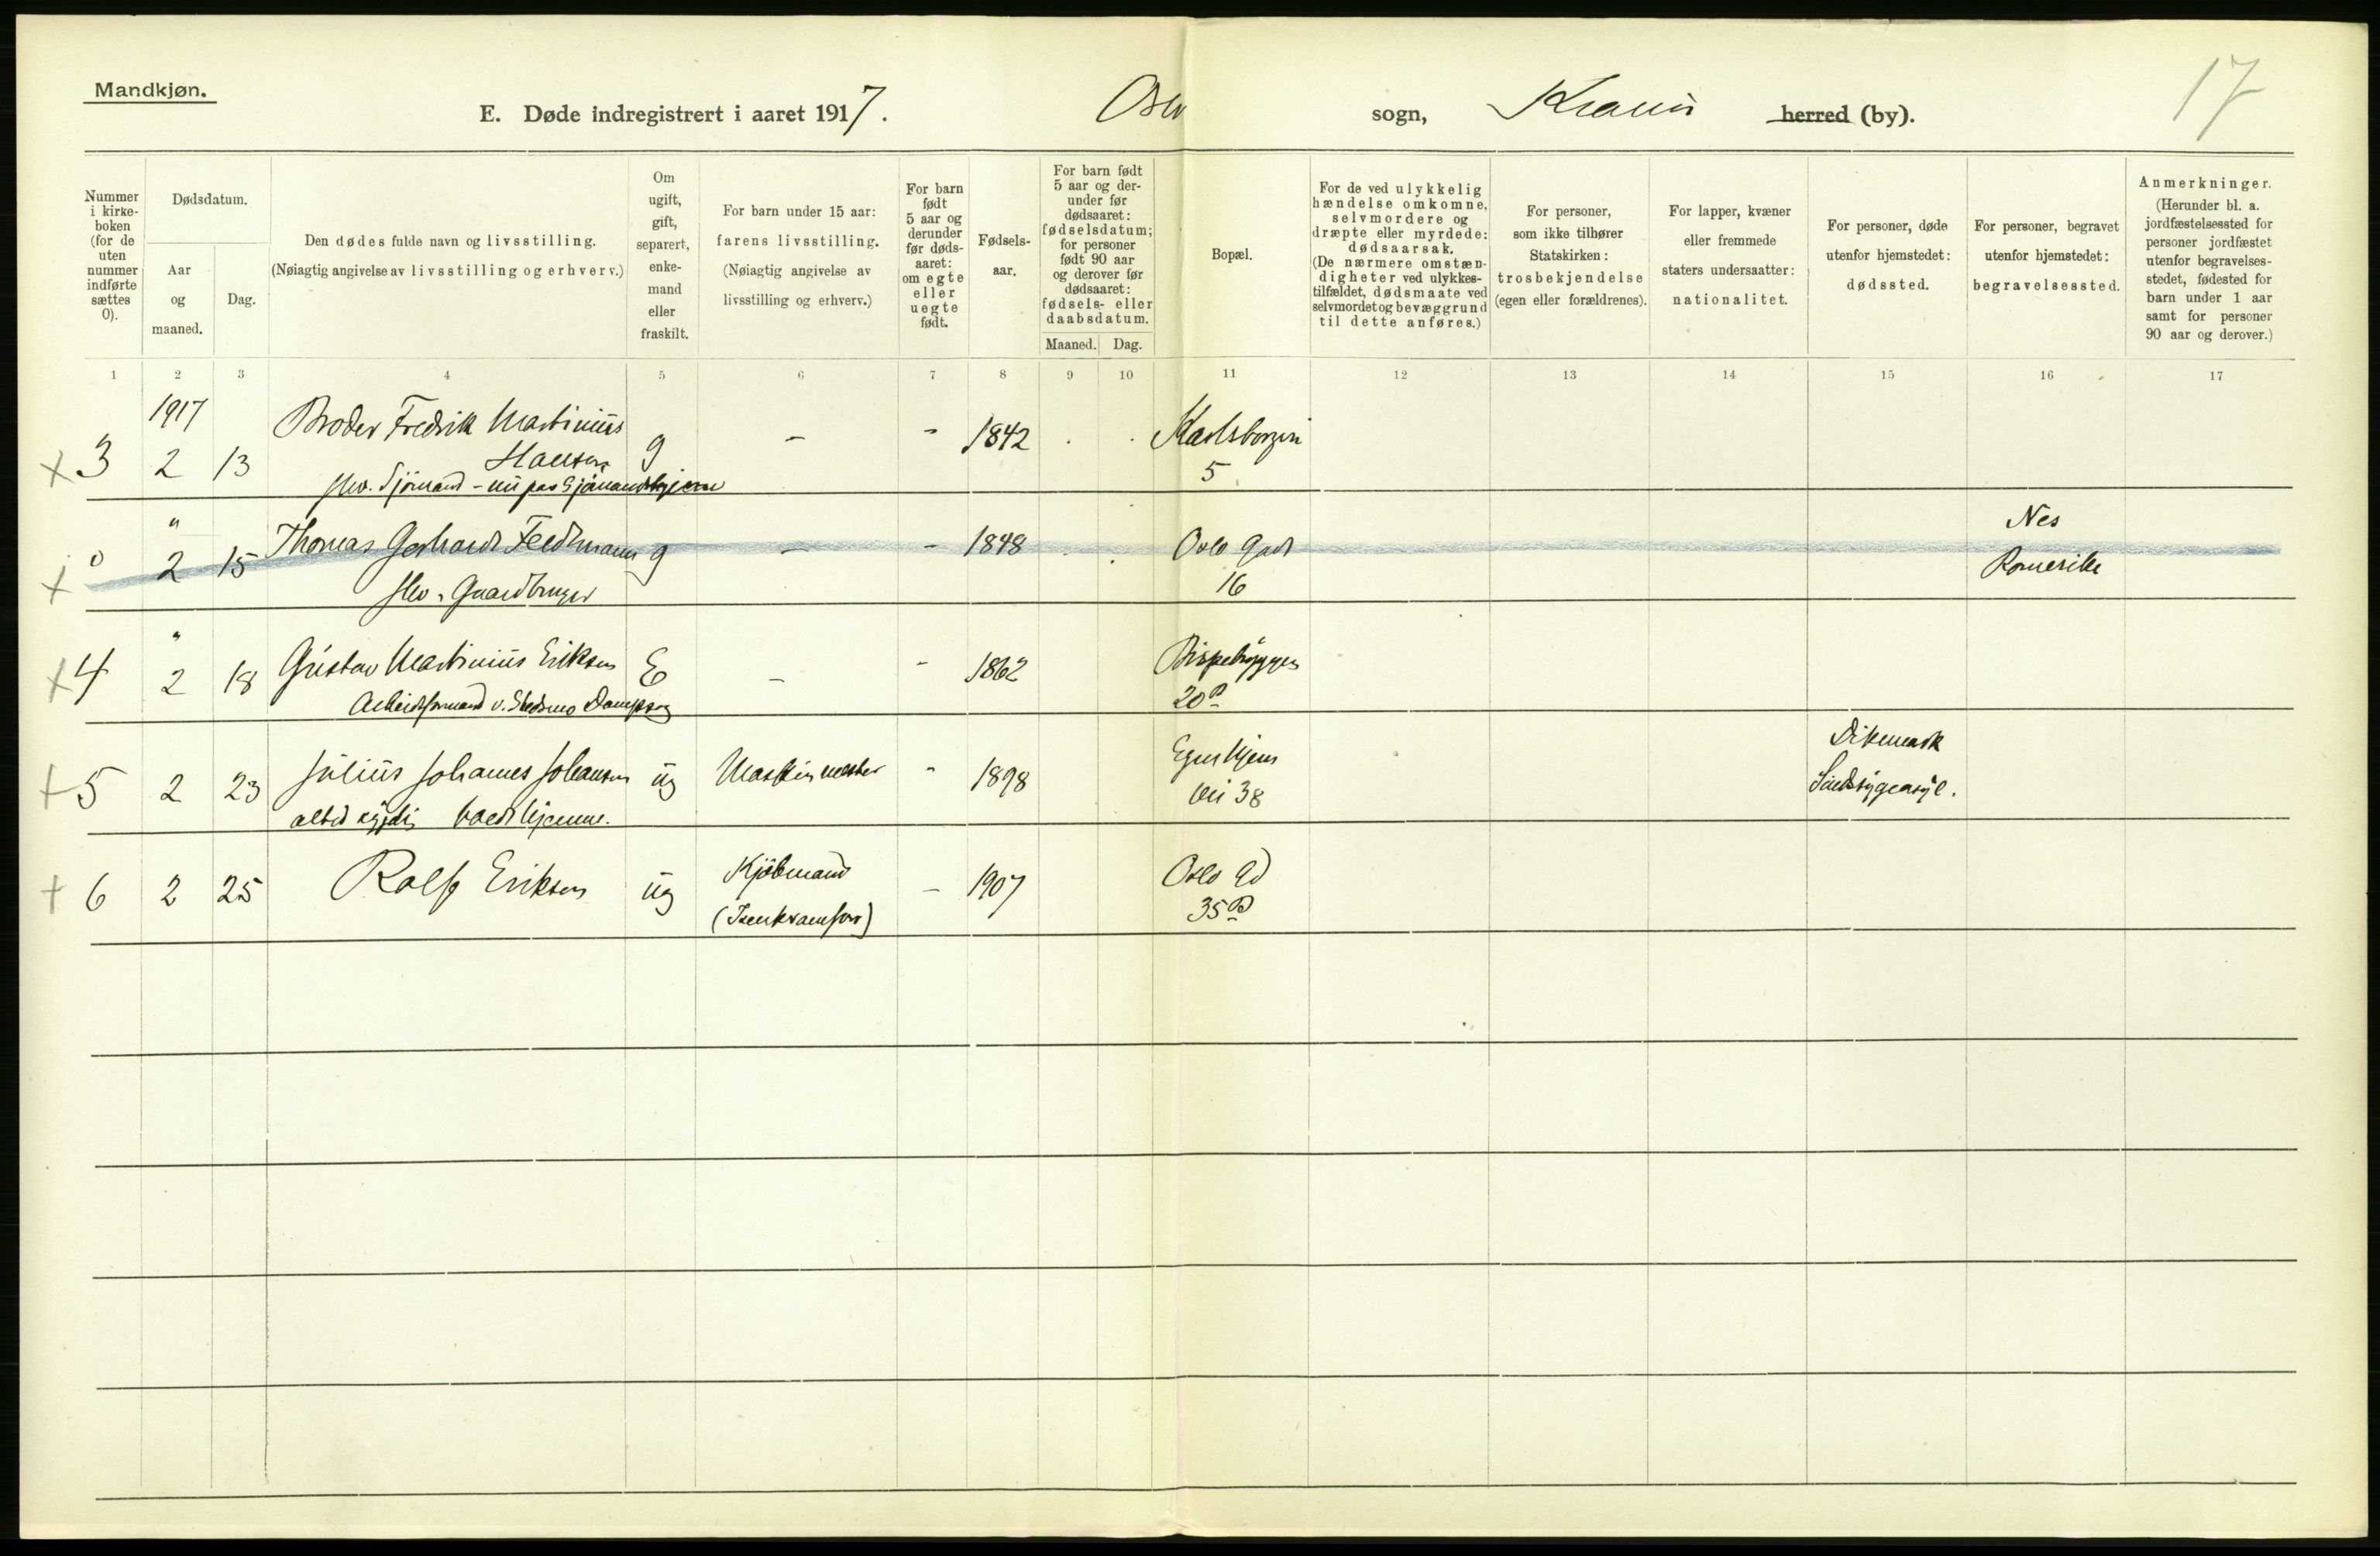 Mandkjøn.
E. Døde indregistrert i aaret 1917. Oslo sogn, Krania herred (by).
17
Nummer i kirke- boken (for de uten nummer indførte sættes 0).
Dødsdatum.
Aar og maaned.
Dag.
Den dødes fulde navn og livsstilling.
(Nøiagtig angivelse av livsstilling og erhverv.)
Om ugift, gift, separert, enke- mand eller fraskilt.
For barn under 15 aar: farens livsstilling.
(Nøiagtig angivelse av livsstilling og erhverv.)
For barn født 5 aar og derunder før døds- aaret: om egte eller uegte født.
Fødsels- aar.
For barn født 5 aar og der- under før dødsaaret: fødselsdatum; for personer født 90 aar og derover før dødsaaret: fødsels- eller daabsdatum.
Maaned. Dag.
Bopæl.
For de ved ulykkelig hændelse omkomne, selvmordere og dræpte eller myrdede: dødsaarsak.
(De nærmere omstæn- digheter ved ulykkes- tilfældet, dødsmaate ved selvmordet og bevæggrund til dette anføres.)
For personer, som ikke tilhører Statskirken: trosbekjendelse (egen eller forældrenes).
For lapper, kvæner eller fremmede staters undersaatter: nationalitet.
For personer, døde utenfor hjemstedet: dødssted.
For personer, begravet utenfor hjemstedet: begravelsessted.
Anmerkninger.
(Herunder bl. a. jordfæstelsessted for personer jordfæstet utenfor begravelses- stedet, fødested for barn under 1 aar samt for personer 90 aar og derover.)
1 2 3 4 5 6 7 8 9 10 11 12 13 14 15 16 17
1917
+ 3 2 13 Broder Fredrik Martinius Hansen g - - 1842 Karlsborgvn 5
fhv. Sjömand - nu paa Sjömandshjem
"
+ 0 2 15 Thomas Gerhard Feedmann g - - 1848 Oslo Gad 16 Nes Romerike
fhv. Gaardbruger
"
+ 4 2 18 Gustav Martinius Eriksen E - - 1862 Bispebryggen 20B
Arbeidsformand v. Skedsmo Dampsag
+ 5 2 23 Julius Johannes Johansen ug Maskinmester - 1898 Egnshjem vei 38 Dikemark Sindsygeasyl.
altid sygelig vært hjemme.
+ 6 2 25 Rolf Eriksen ug Kjøbmand (Isenkramforr) - 1907 Oslo Gd 35B